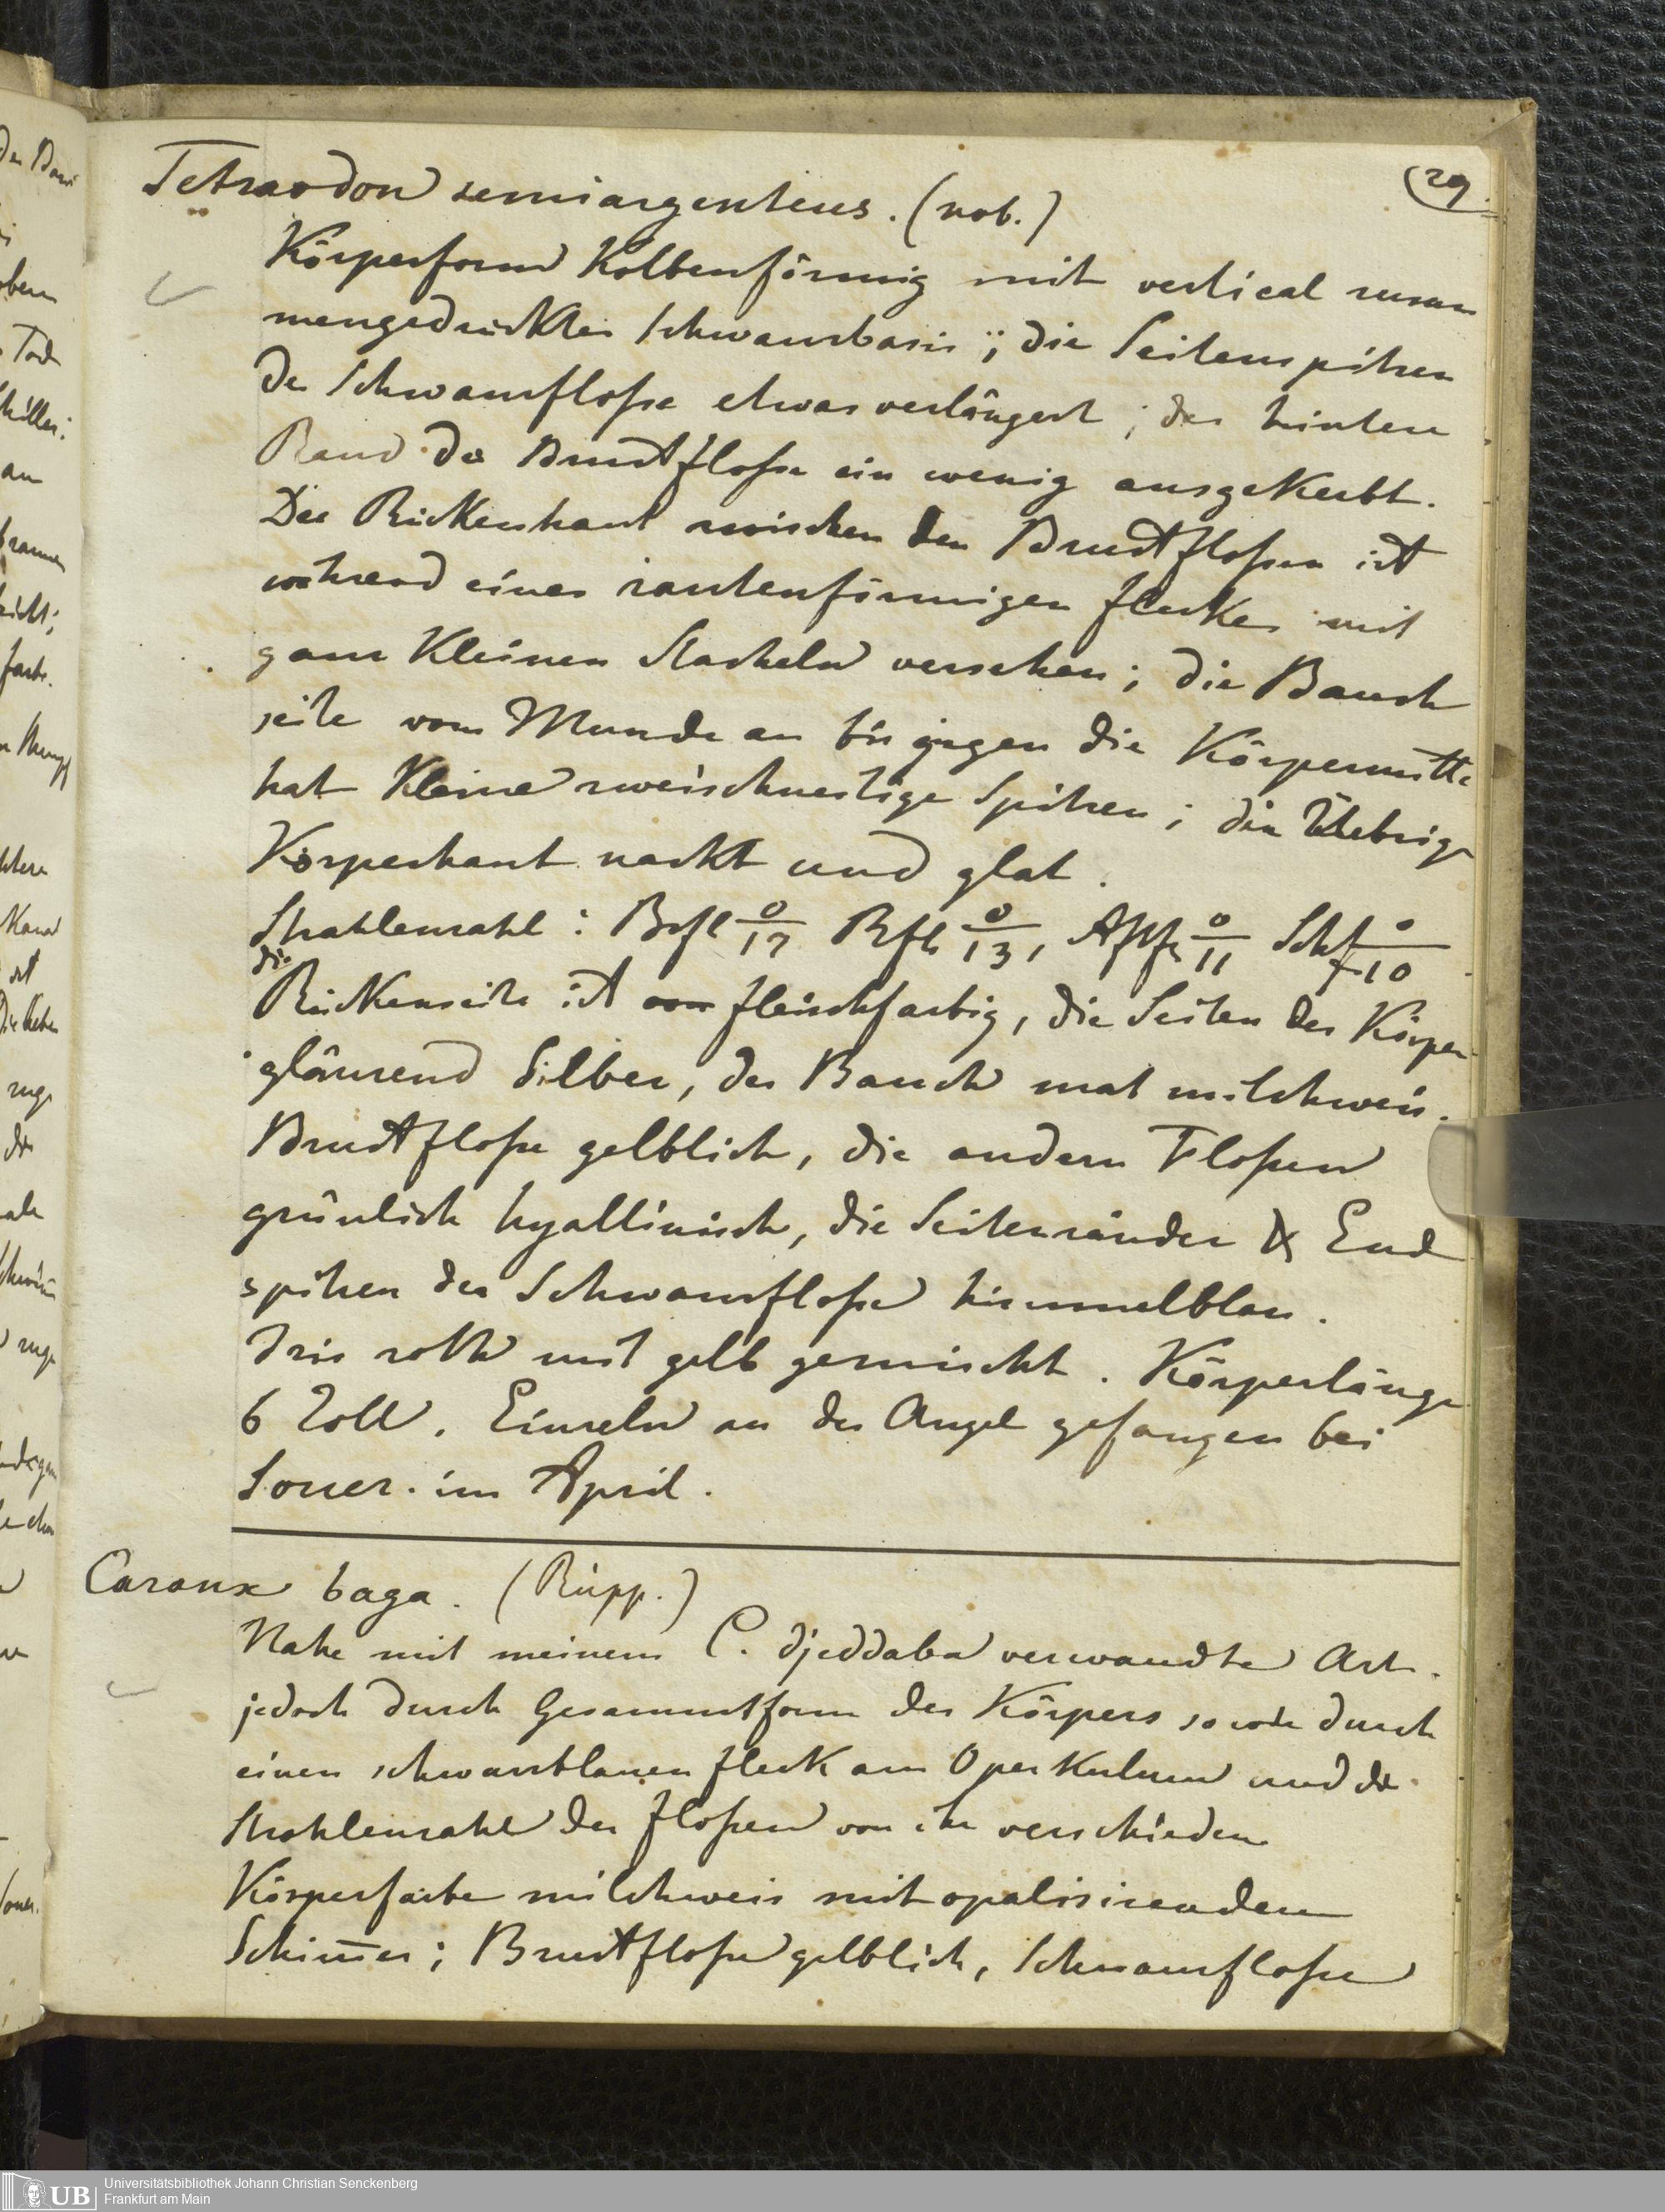 29
Tetraodon semiargenteus. (nob.)
Körperform Kolbenförmig mit vertical zusam
mengedruckter Schwanzbasis; die Seitenspitzen
der Schwanzfloße etwas verlängert; der hintere
Rand der Brustfloße ein wenig ausgeKerbt.
Die RückenHaut zwischen den Brustfloßen ist
während eines rautenförmigen fleckes mit
ganz Kleinen Stacheln versehen; die Bauch
seite vom Munde an bis gegen die Körpermitte
hat Kleine zweischneitige Spitzen; die Uebrige
Körperhaut nackt und glat.
Strahlenzahl: Brfl 0/17 Rfl 0/13, Aftfl 0/11 Schf 0/10
die
Rückenseite ist fleischfarbig, die Seiten des Körper
glänzend Silber, der Bauch mat milchweis.
Brustfloße gelblich, die andern Floßen
grünlich hyallinisch, die Seitenränder & End
spitzen der Schwanzfloße himmelblau.
Iris roth mit gelb gemischt. Körperlänge
6 Zoll. Einzeln an der Angel gefangen bei
Souez. im April.
Caranx baga. (Rüpp.)
Nahe mit meinem C. djeddaba verwandte Art.
jedoch durch Gesammtform des Körpers sowie durch
einen schwarzblauen fleck am OperKulum und die
Strahlenzahl der floßen von ihr verschieden
Körperfarbe milchweis mit opalisirendem
Schim̅er; Brustfloße gelblich, Schwanzfloße
Universitätsbibliothek Johann Christian Senckenberg
Frankfurt am Main
UB